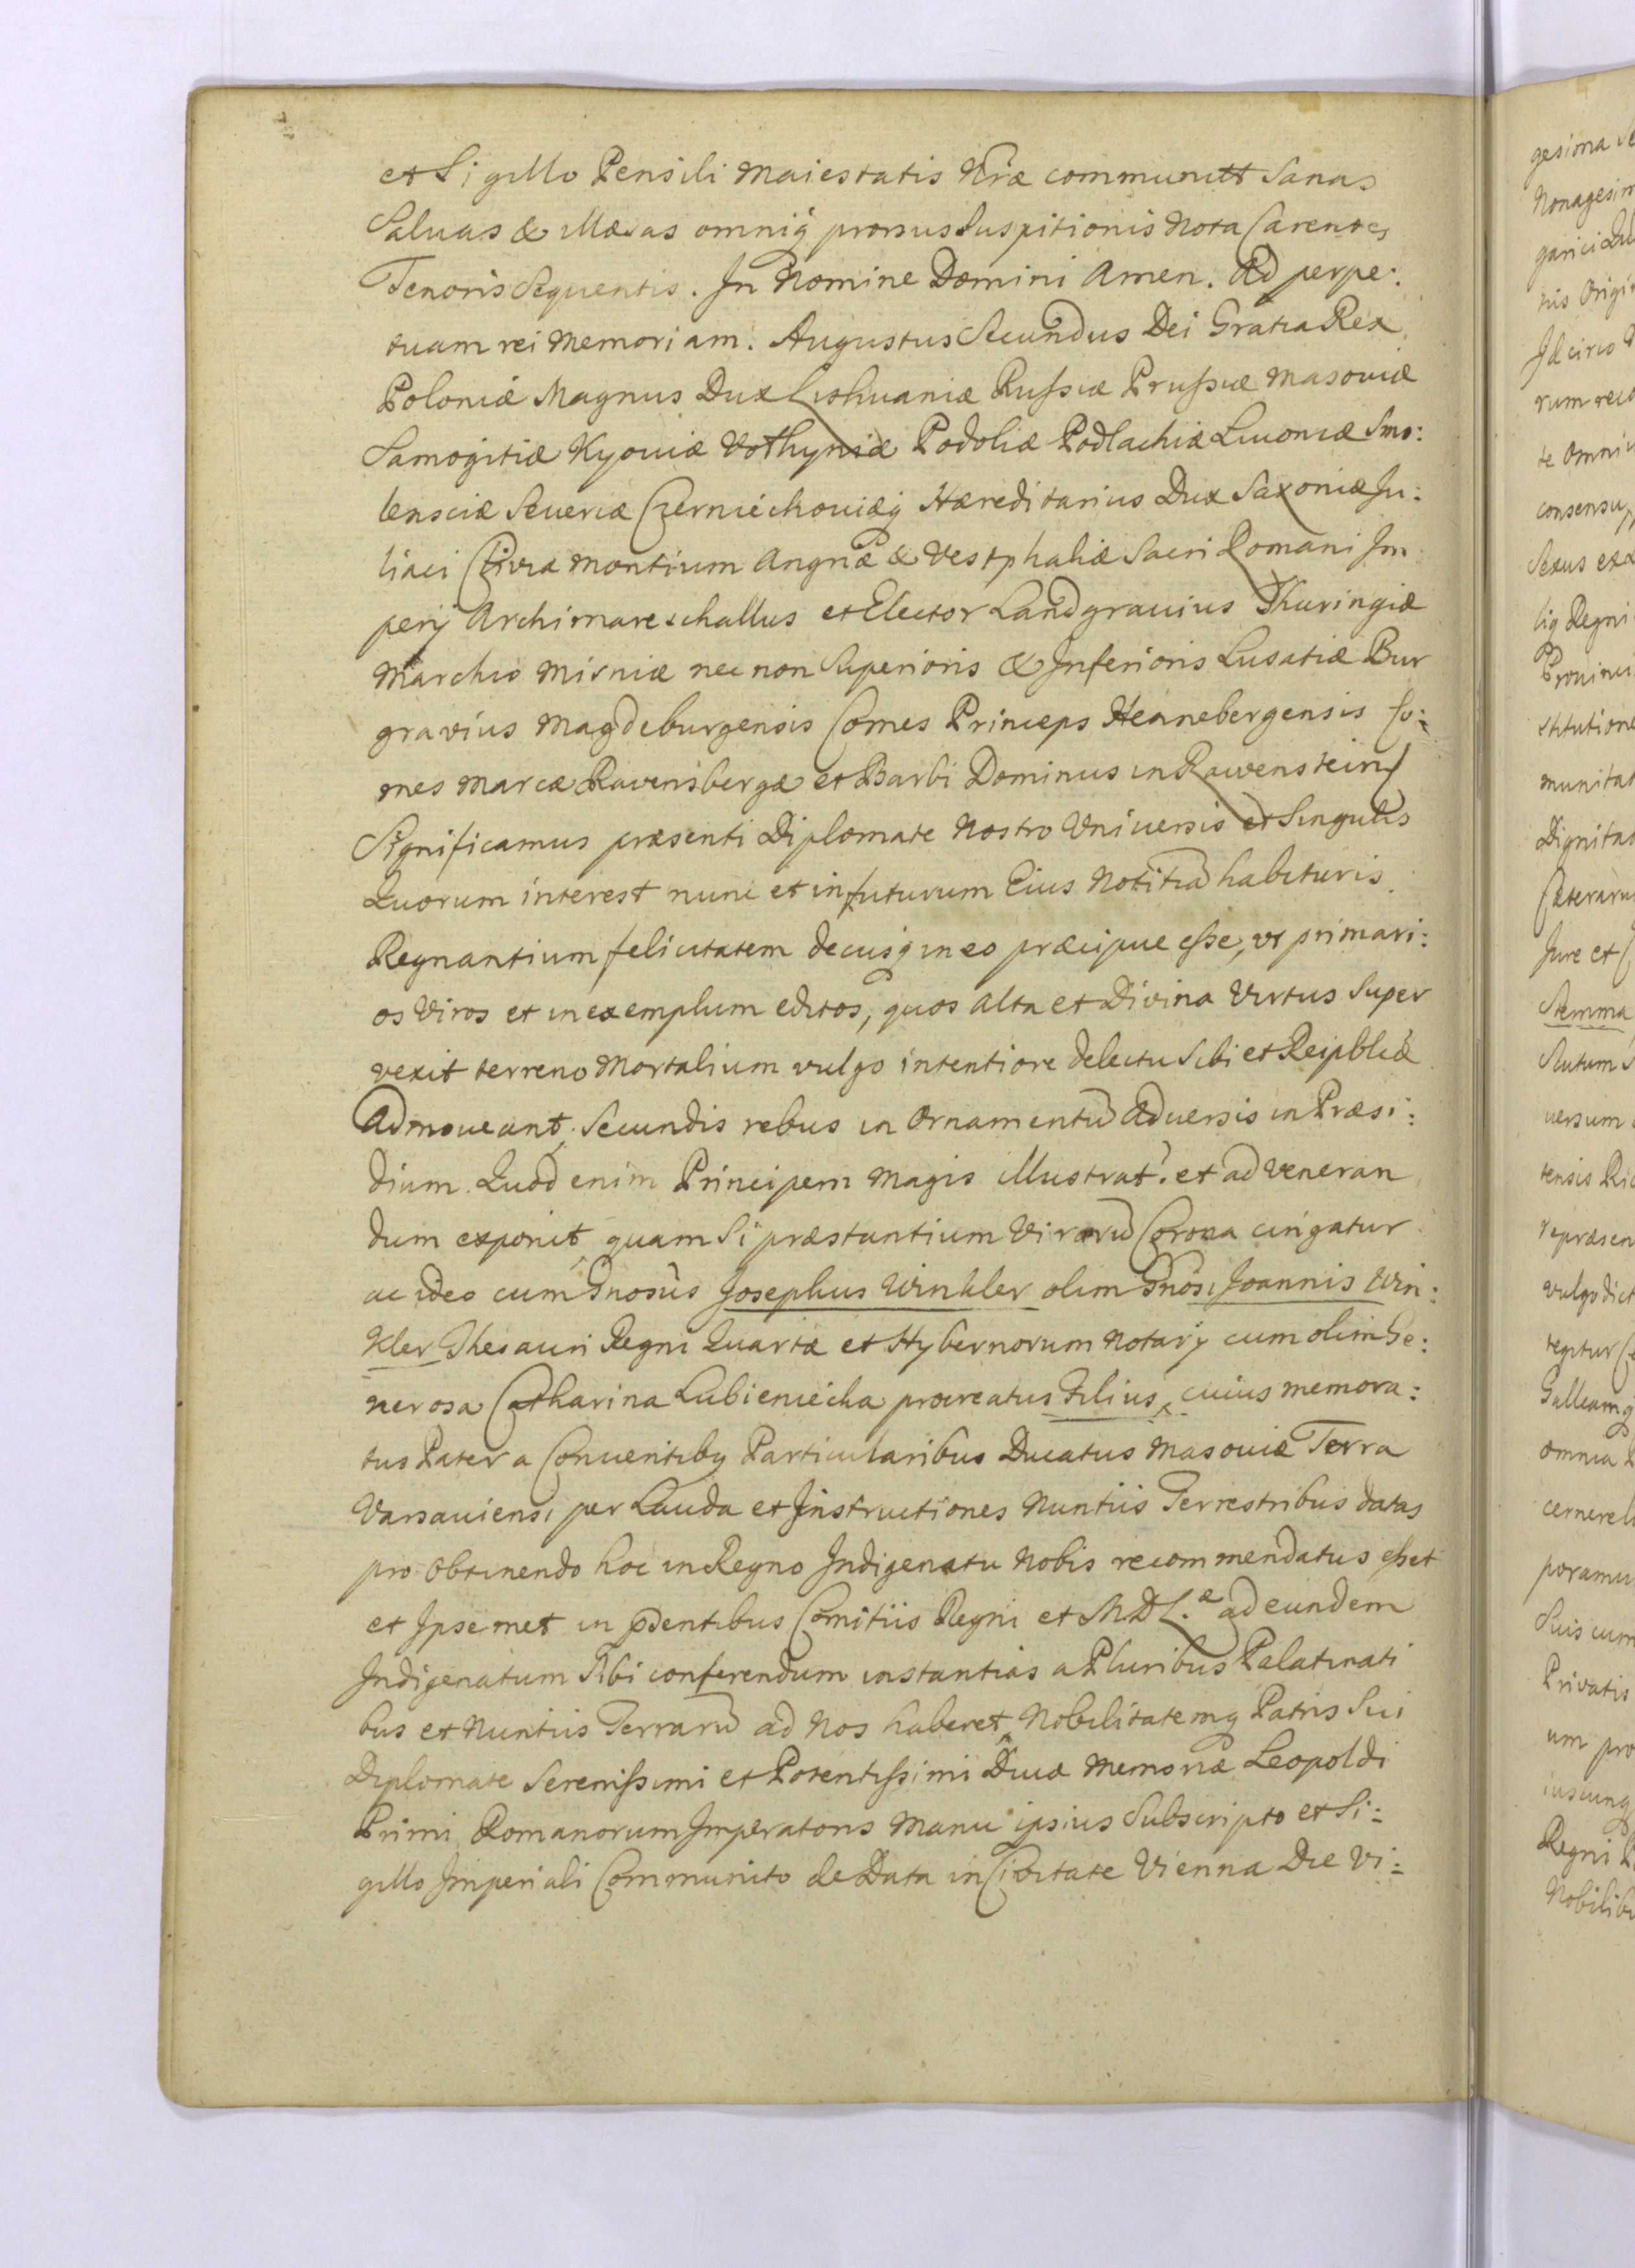 et Sigillo Pensili Maiestatis Nræ communitt Sanas
Saluas & Illæsas omniq prorsus Suspitionis Nota Carentes
Tenoris Sequentis. In Nomine Domini Amen. Ad perpe:
tuam rei Memoriam. Augustus Secundus Dei Gratia Rex
Poloniæ Magnus Dux Lithuaniæ Russiæ Prussiæ Masouiæ
Samogitiæ Kyouiæ Vothyniæ Podoliæ Podlachiæ Liuoniæ Smo:
lensciæ Seueriæ Czerniechouiæq Hæreditarius Dux Saxoniæ Ju:
liaci Cliviæ Montium Angriæ & Vestphaliæ Sacri Romani Im
perij Archimareschallus et Elector Landgrauius Thuringiæ
Marchio Misniæ nec non Superioris & Inferioris Lusatiæ Bur
gravius Magdeburgensis Comes Princeps Hennebergensis Co:
mes Marcæ Ravensbergæ et Barbi Dominus in Rawenstein
Significamus præsenti Diplomate Nostro Vniuersis et Singulis
Quorum interest nunc et in futurum Eius Notitiã habituris
Regnantium felicitatem decusq in eo præcipue esse, vt primari:
os Viros et in exemplum editos, quos alta et Divina Virtus Super
vexit terreno Mortalium vulgo intentiore delectu Sibi et Reipblicæ
Admoueant, Secundis rebus in Ornamentũ Aduersis in Præsi:
dium. Quod enim Principem Magis illustrat? et ad Veneran
dum exponit, quam Si præstantium Virorũ Corona cingatur
ac ideo cum Gnosus Josephus Winkler olim Gnosi Joannis Win:
kler Thesauri Regni Quartæ et Hybernorum Notarij cum olim Ge:
nerosa Catharina Lubieniecka procreatus Filius, cuius memora:
tus Pater a Conuentiby Particularibus Ducatus Masouiæ Terra
Varsauiensi per Lauda et Instructiones Nuntiis Terrestribus datas
pro Obtinendo hoc in Regno Indigenatu Nobis recommendatus esset
et Ipsemet in pdentibus Comitiis Regni et M D L.æ ad eundem
Indigenatum Sibi conferendum instantias a Pluribus Palatinati
bus et Nuntiis Terrarũ ad Nos haberet, Nobilitatemq Patris Sui
Diplomate Serenissimi et Potentissimi Diuæ Memoriæ Leopoldi
Primi Romanorum Imperatoris Manu ipsius Subscripto et Si:
gillo Imperiali Communito de Data in Ciuitate Vienna Die Vi: